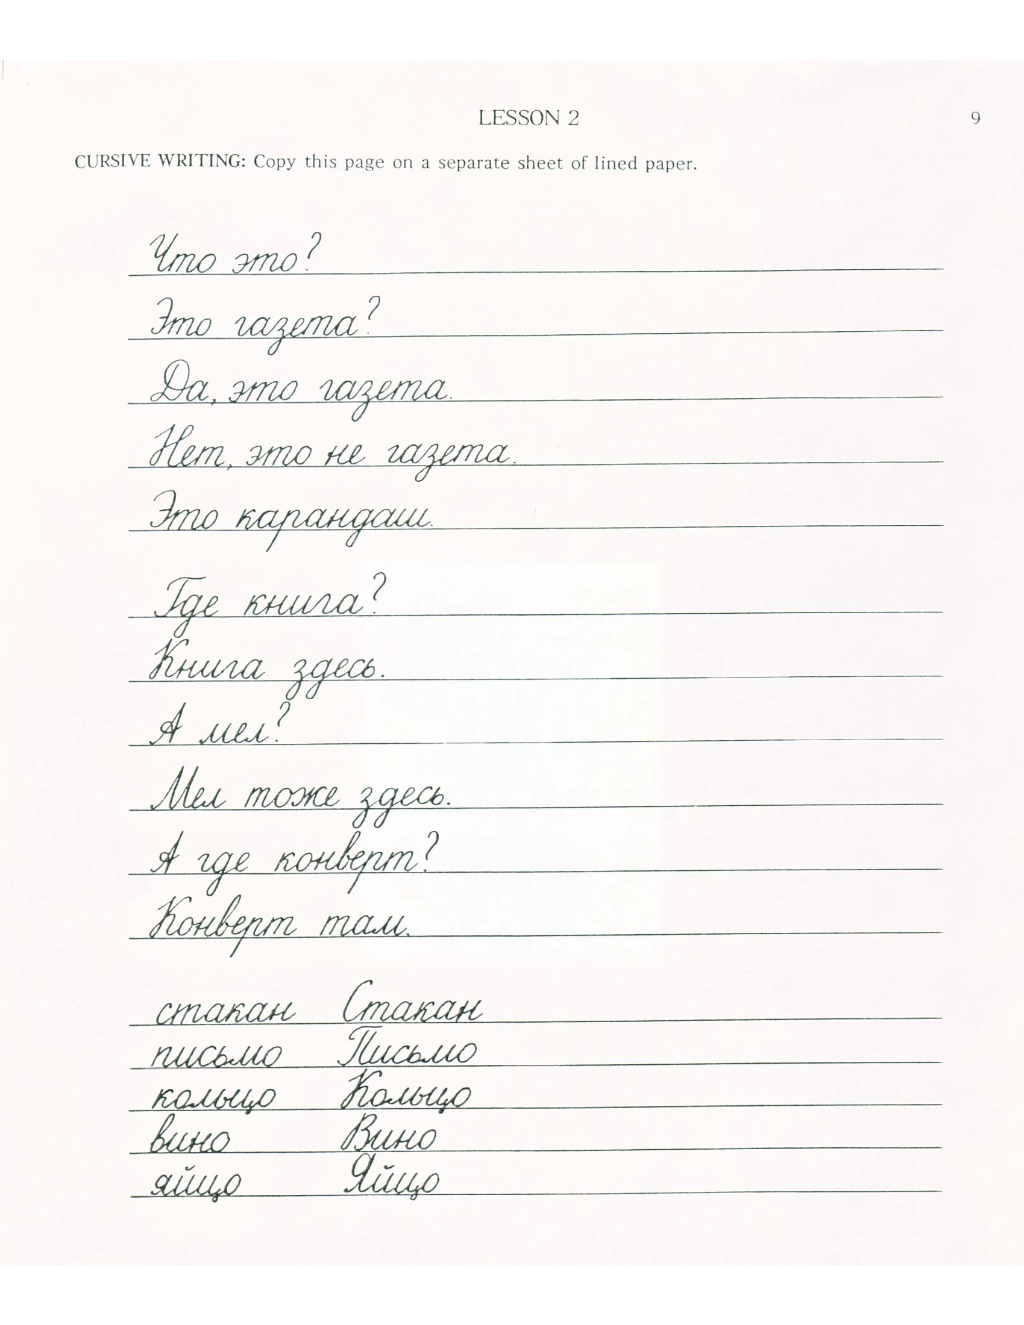 LESSON 2
9
CURSIVE WRITING: Copy this page on a separate sheet of lined paper.
Что это?
Это газета?
Да, это газета.
Нет, это не газета.
Это карандаш.
Где книга?
Книга здесь.
А мел?
Мел тоже здесь.
А где конверт?
Конверт там.
стакан Стакан
письмо Письмо
кольцо Кольцо
вино Вино
яйцо Яйцо